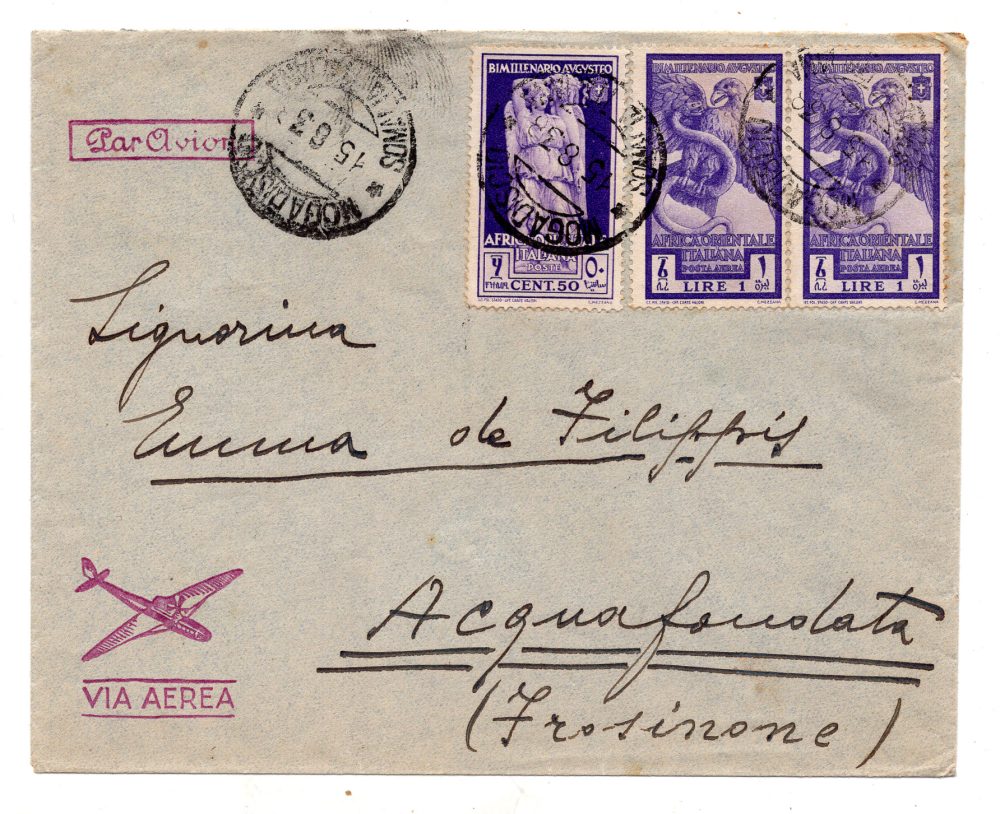 Par Avion
MOGADISCIO
15 8 3
BIMILLENARIO AVGVSTEO
AFRICA ORIENTALE
ITALIANA
POSTE
CENT. 50
BIMILLENARIO AVGVSTEO
AFRICA ORIENTALE
ITALIANA
POSTA AEREA
LIRE 1
BIMILLENARIO AVGVSTEO
AFRICA ORIENTALE
ITALIANA
POSTA AEREA
LIRE 1
Signorina
Emma de Filippis
Acquafondata
(Frosinone)
VIA AEREA